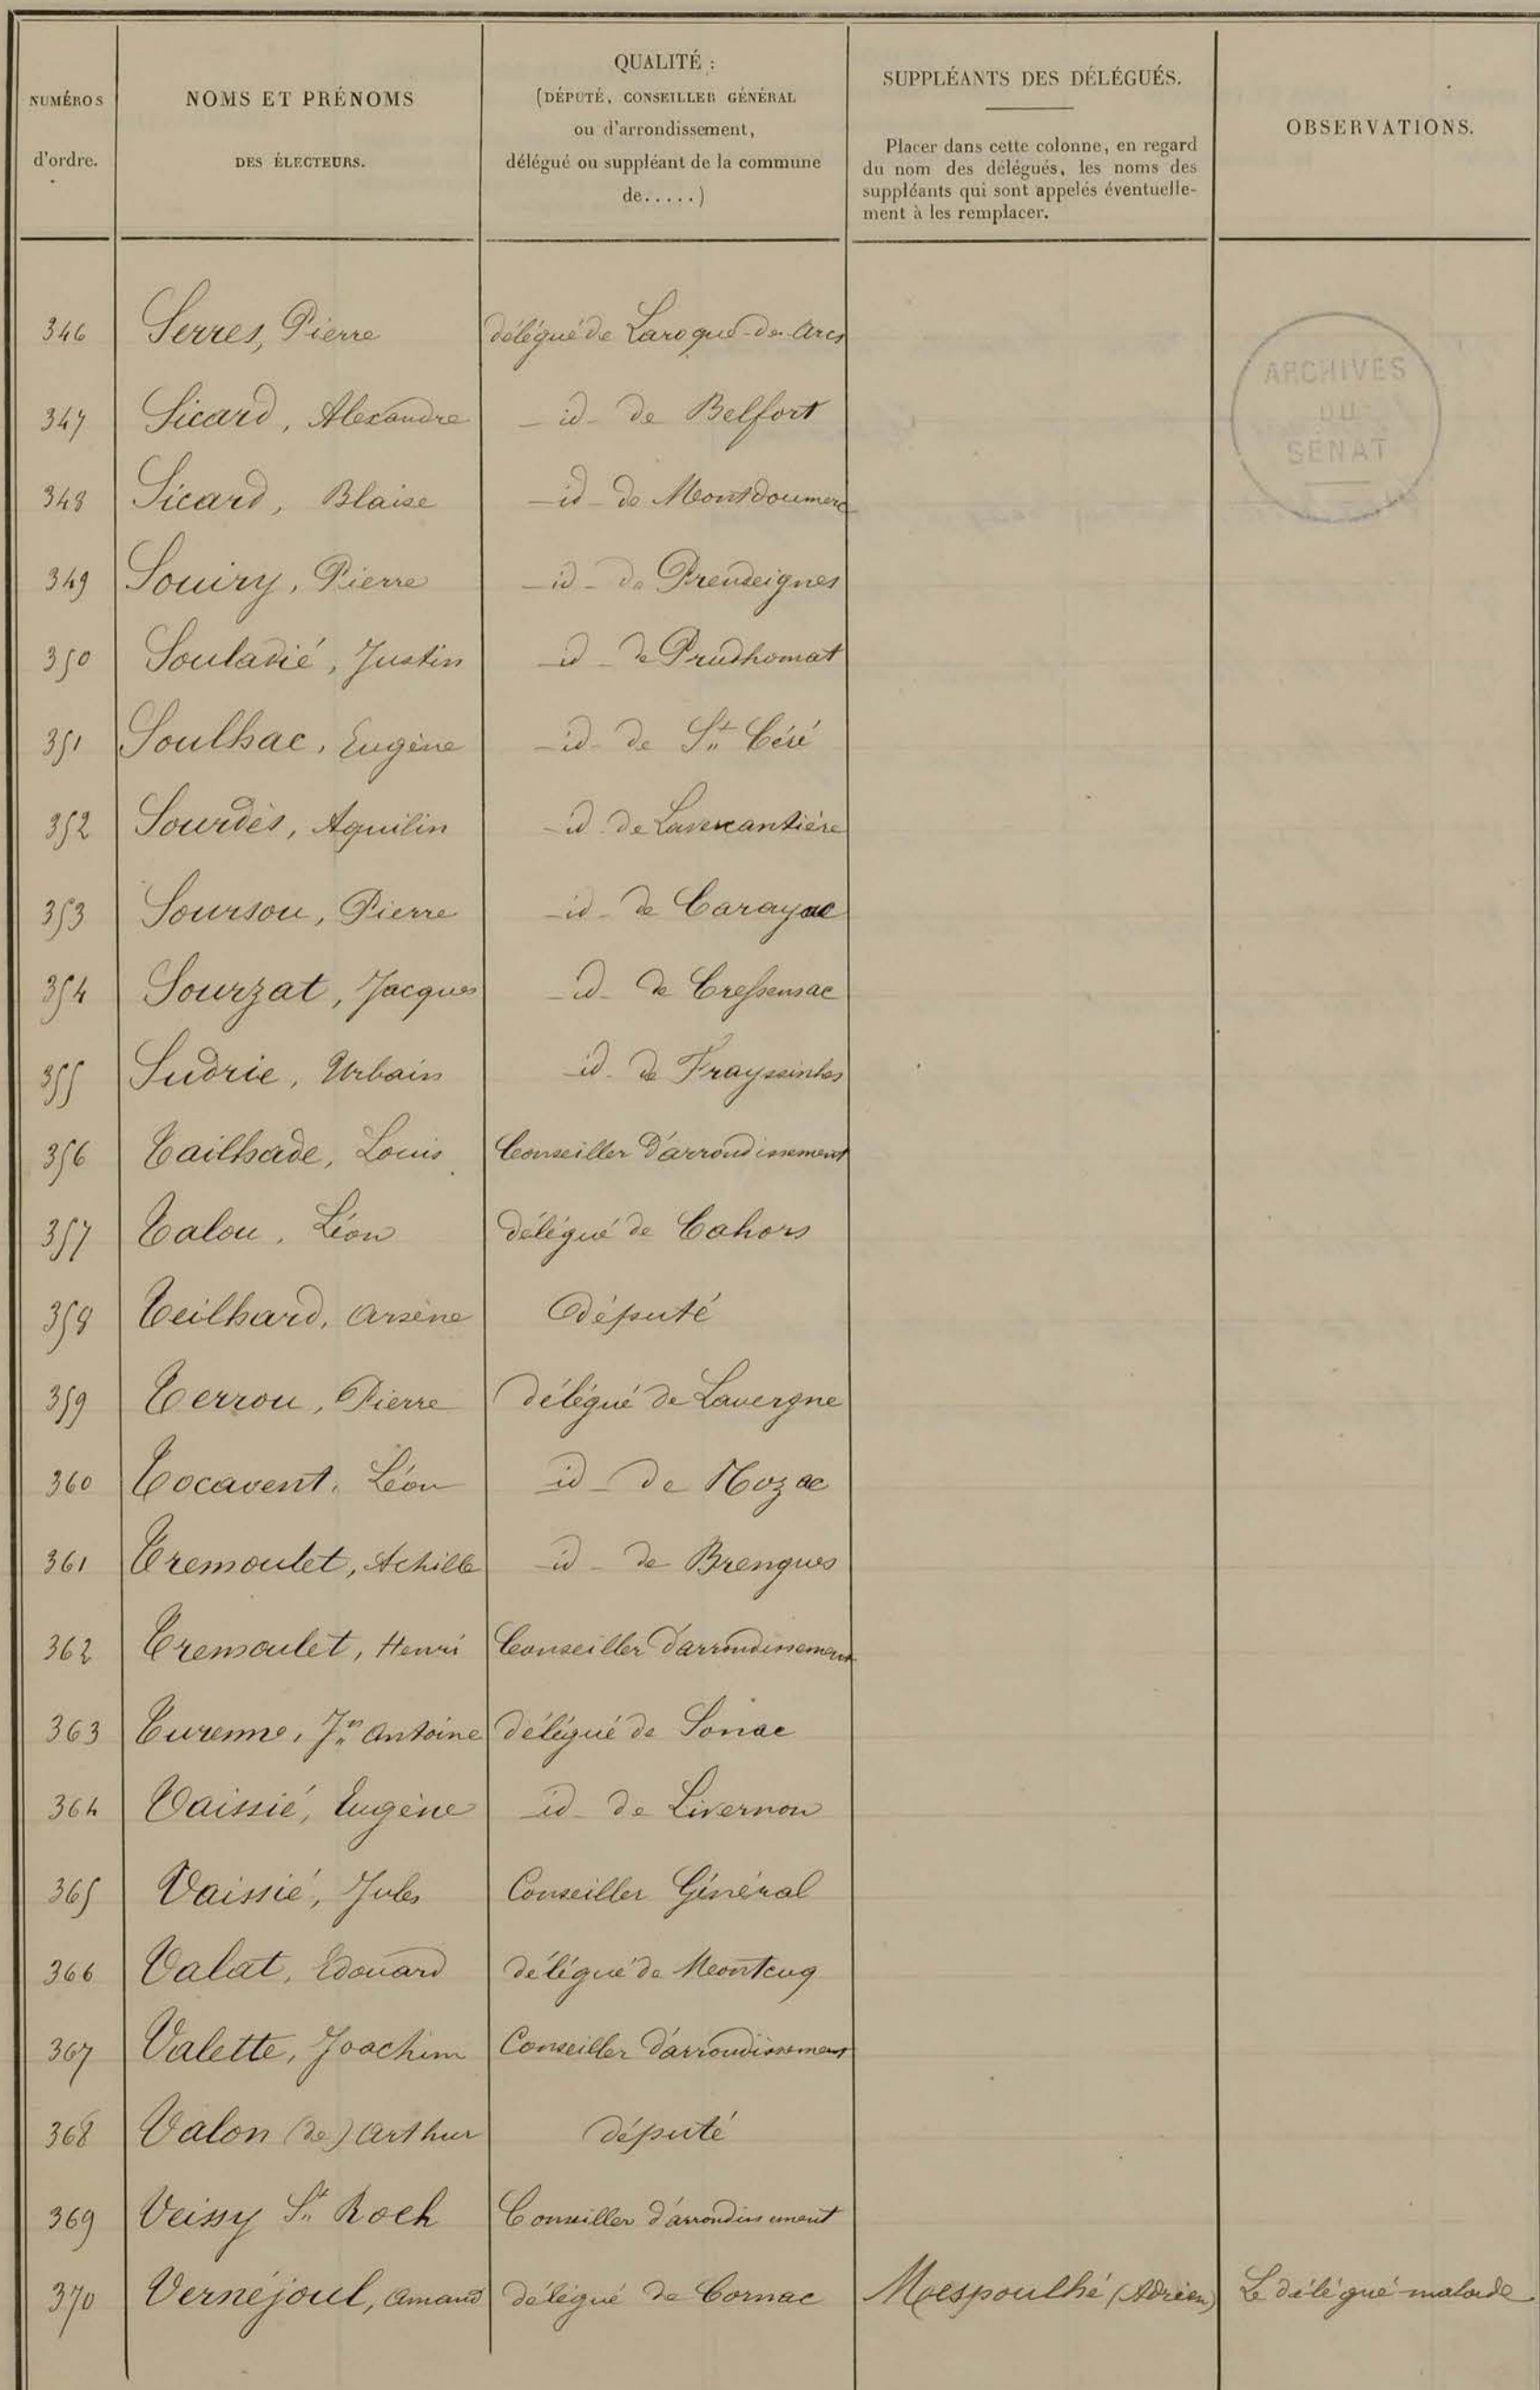 NUMÉROS
d'ordre.
NOMS ET PRÉNOMS
DES ÉLECTEURS.
QUALITÉ :
(DÉPUTÉ, CONSEILLER GÉNÉRAL
ou d'arrondissement,
délégué ou suppléant de la commune
de.....)
SUPPLÉANTS DES DÉLÉGUÉS.
Placer dans cette colonne, en regard
du nom des délégués, les noms des
suppléants qui sont appelés éventuelle-
ment à les remplacer.
OBSERVATIONS.
ARCHIVES
DU
SÉNAT
346 Serres, Pierre délégué de Laroque-des-Arcs
347 Sicard, Alexandre _ id _ de Belfort
348 Sicard, Blaise _ id _ de Montdoumerc
349 Souiry, Pierre _ id _ de Prendeignes
350 Souladié, Justin _ id _ de Prudhomat
351 Soulhac, Eugène _ id _ de St Céré
352 Sourdès, Aquilin _ id _ de Lavercantière
353 Soursou, Pierre _ id _ de Carayac
354 Sourzat, Jacques _ id _ de Cressensac
355 Sudrie, Urbain _ id _ de Frayssinhes
356 Tailhade, Louis Conseiller d'arrondissement
357 Talou, Léon délégué de Cahors
358 Teilhard, Arsène Député
359 Terrou, Pierre délégué de Lavergne
360 Tocavent, Léon _ id _ de Nozac
361 Tremoulet, Achille _ id _ de Brengues
362 Tremoulet, Henri Conseiller d'arrondissement
363 Turenne, Jn Antoine délégué de Sonac
364 Vaissié, Eugène _ id _ de Livernon
365 Vaissié, Jules Conseiller Général
366 Valat, Edouard délégué de Montcuq
367 Valette, Joachim Conseiller d'arrondissement
368 Valon (de) Arthur député
369 Veissy St Roch Conseiller d'arrondissement
370 Vernéjoul, Amand délégué de Cornac Maespoulhé (Adrien) Le délégué malade